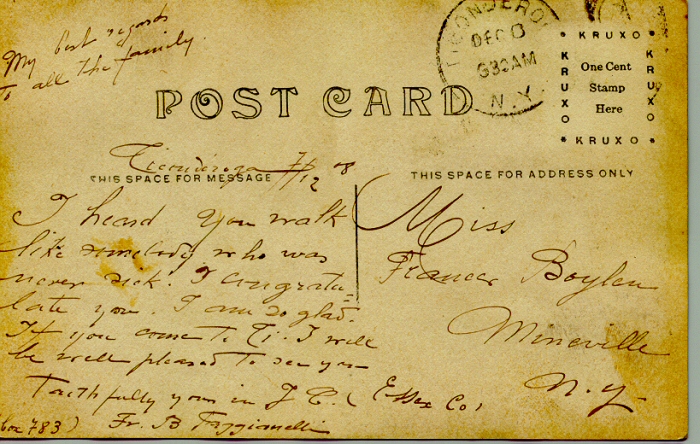 My best regards
to all the family.
TICONDEROGA
DEC 8
630AM
N.Y.
KRUXO
KRUXO
One Cent
Stamp
Here
KRUXO
KRUXO
POST CARD
Ticonderoga 7/12 08
THIS SPACE FOR MESSAGE
THIS SPACE FOR ADDRESS ONLY
I heard you walk
like somebody who was
never sick. I congratu=
late you. I am so glad.
If you come to Ti. I will
be well pleased to see you
Faithfully yours in J. C.
Fr. B
Miss
Frances Boylan
Mineville
(Essex Co)
N.Y.
Box 783)